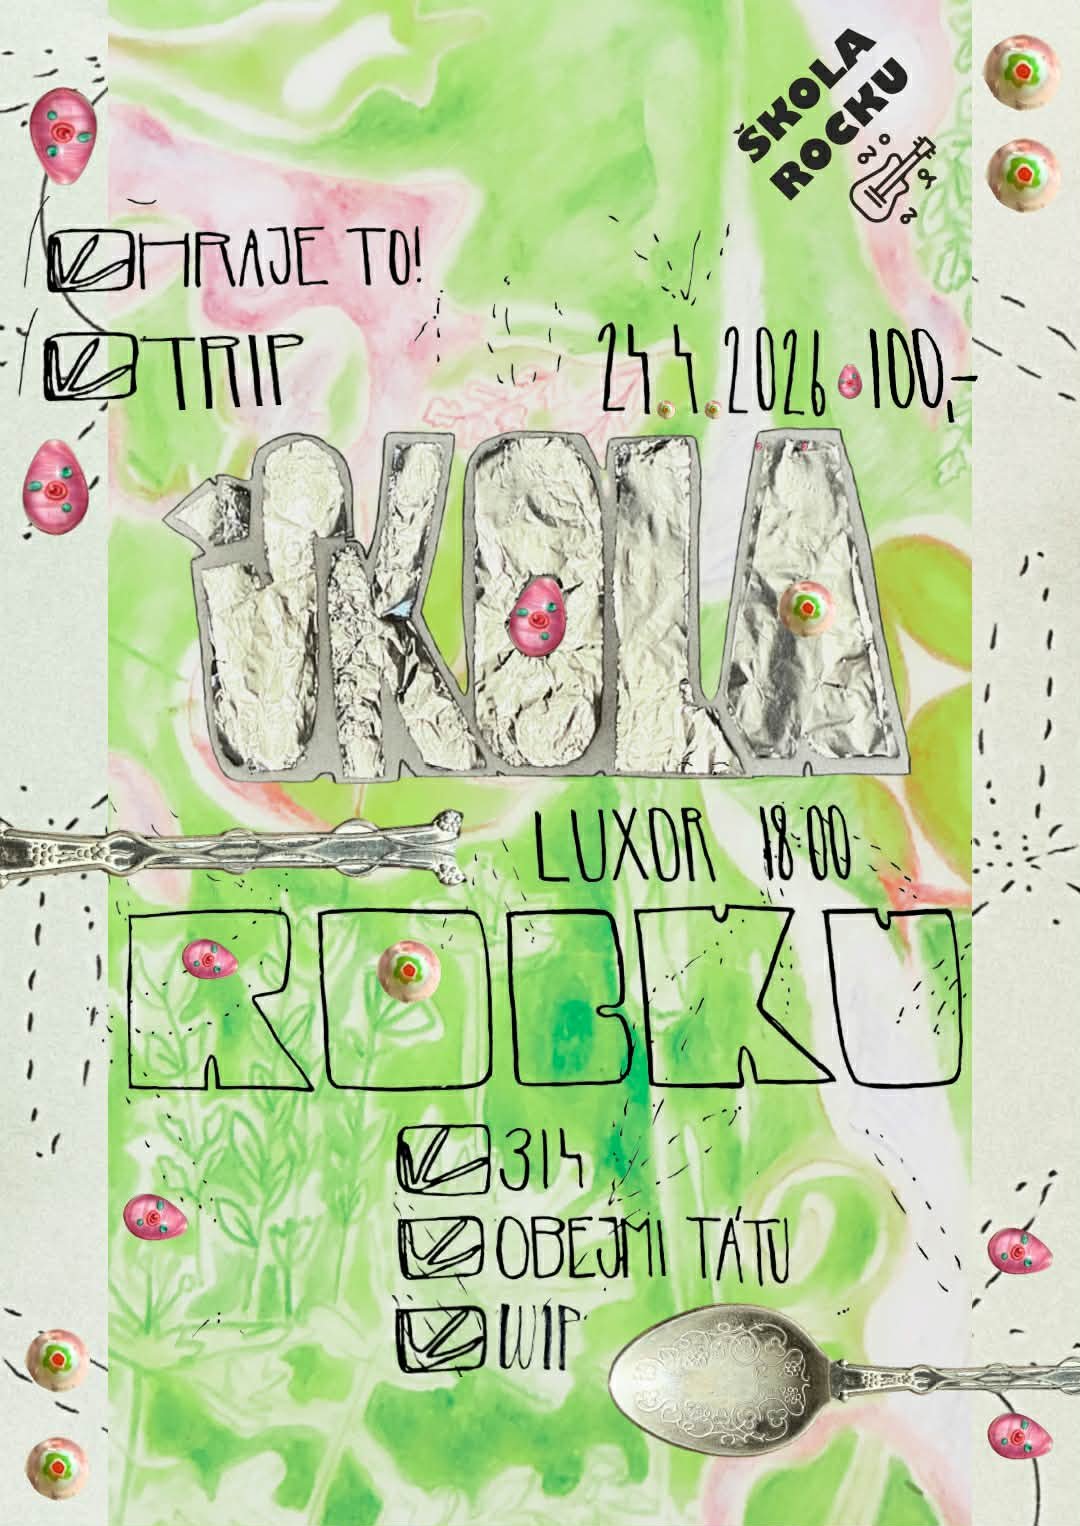 ŠKOLA
ROCKU
HRAJE TO!
TRIP
24.4.2026 100,-
ŠKOLA
LUXOR 18:00
ROCKU
314
OBEJMI TÁTU
WIP